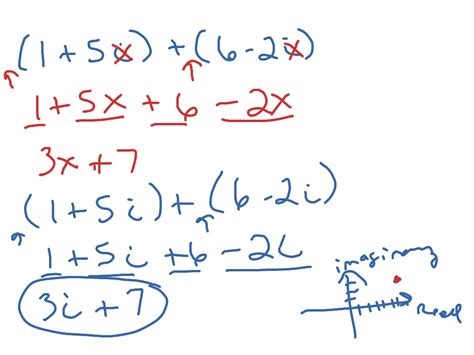 (1+5x)+(6-2x)
1+5x+6-2x
3x+7
(1+5i)+(6-2i)
1+5i+6-2i
3i+7
imaginary
Real